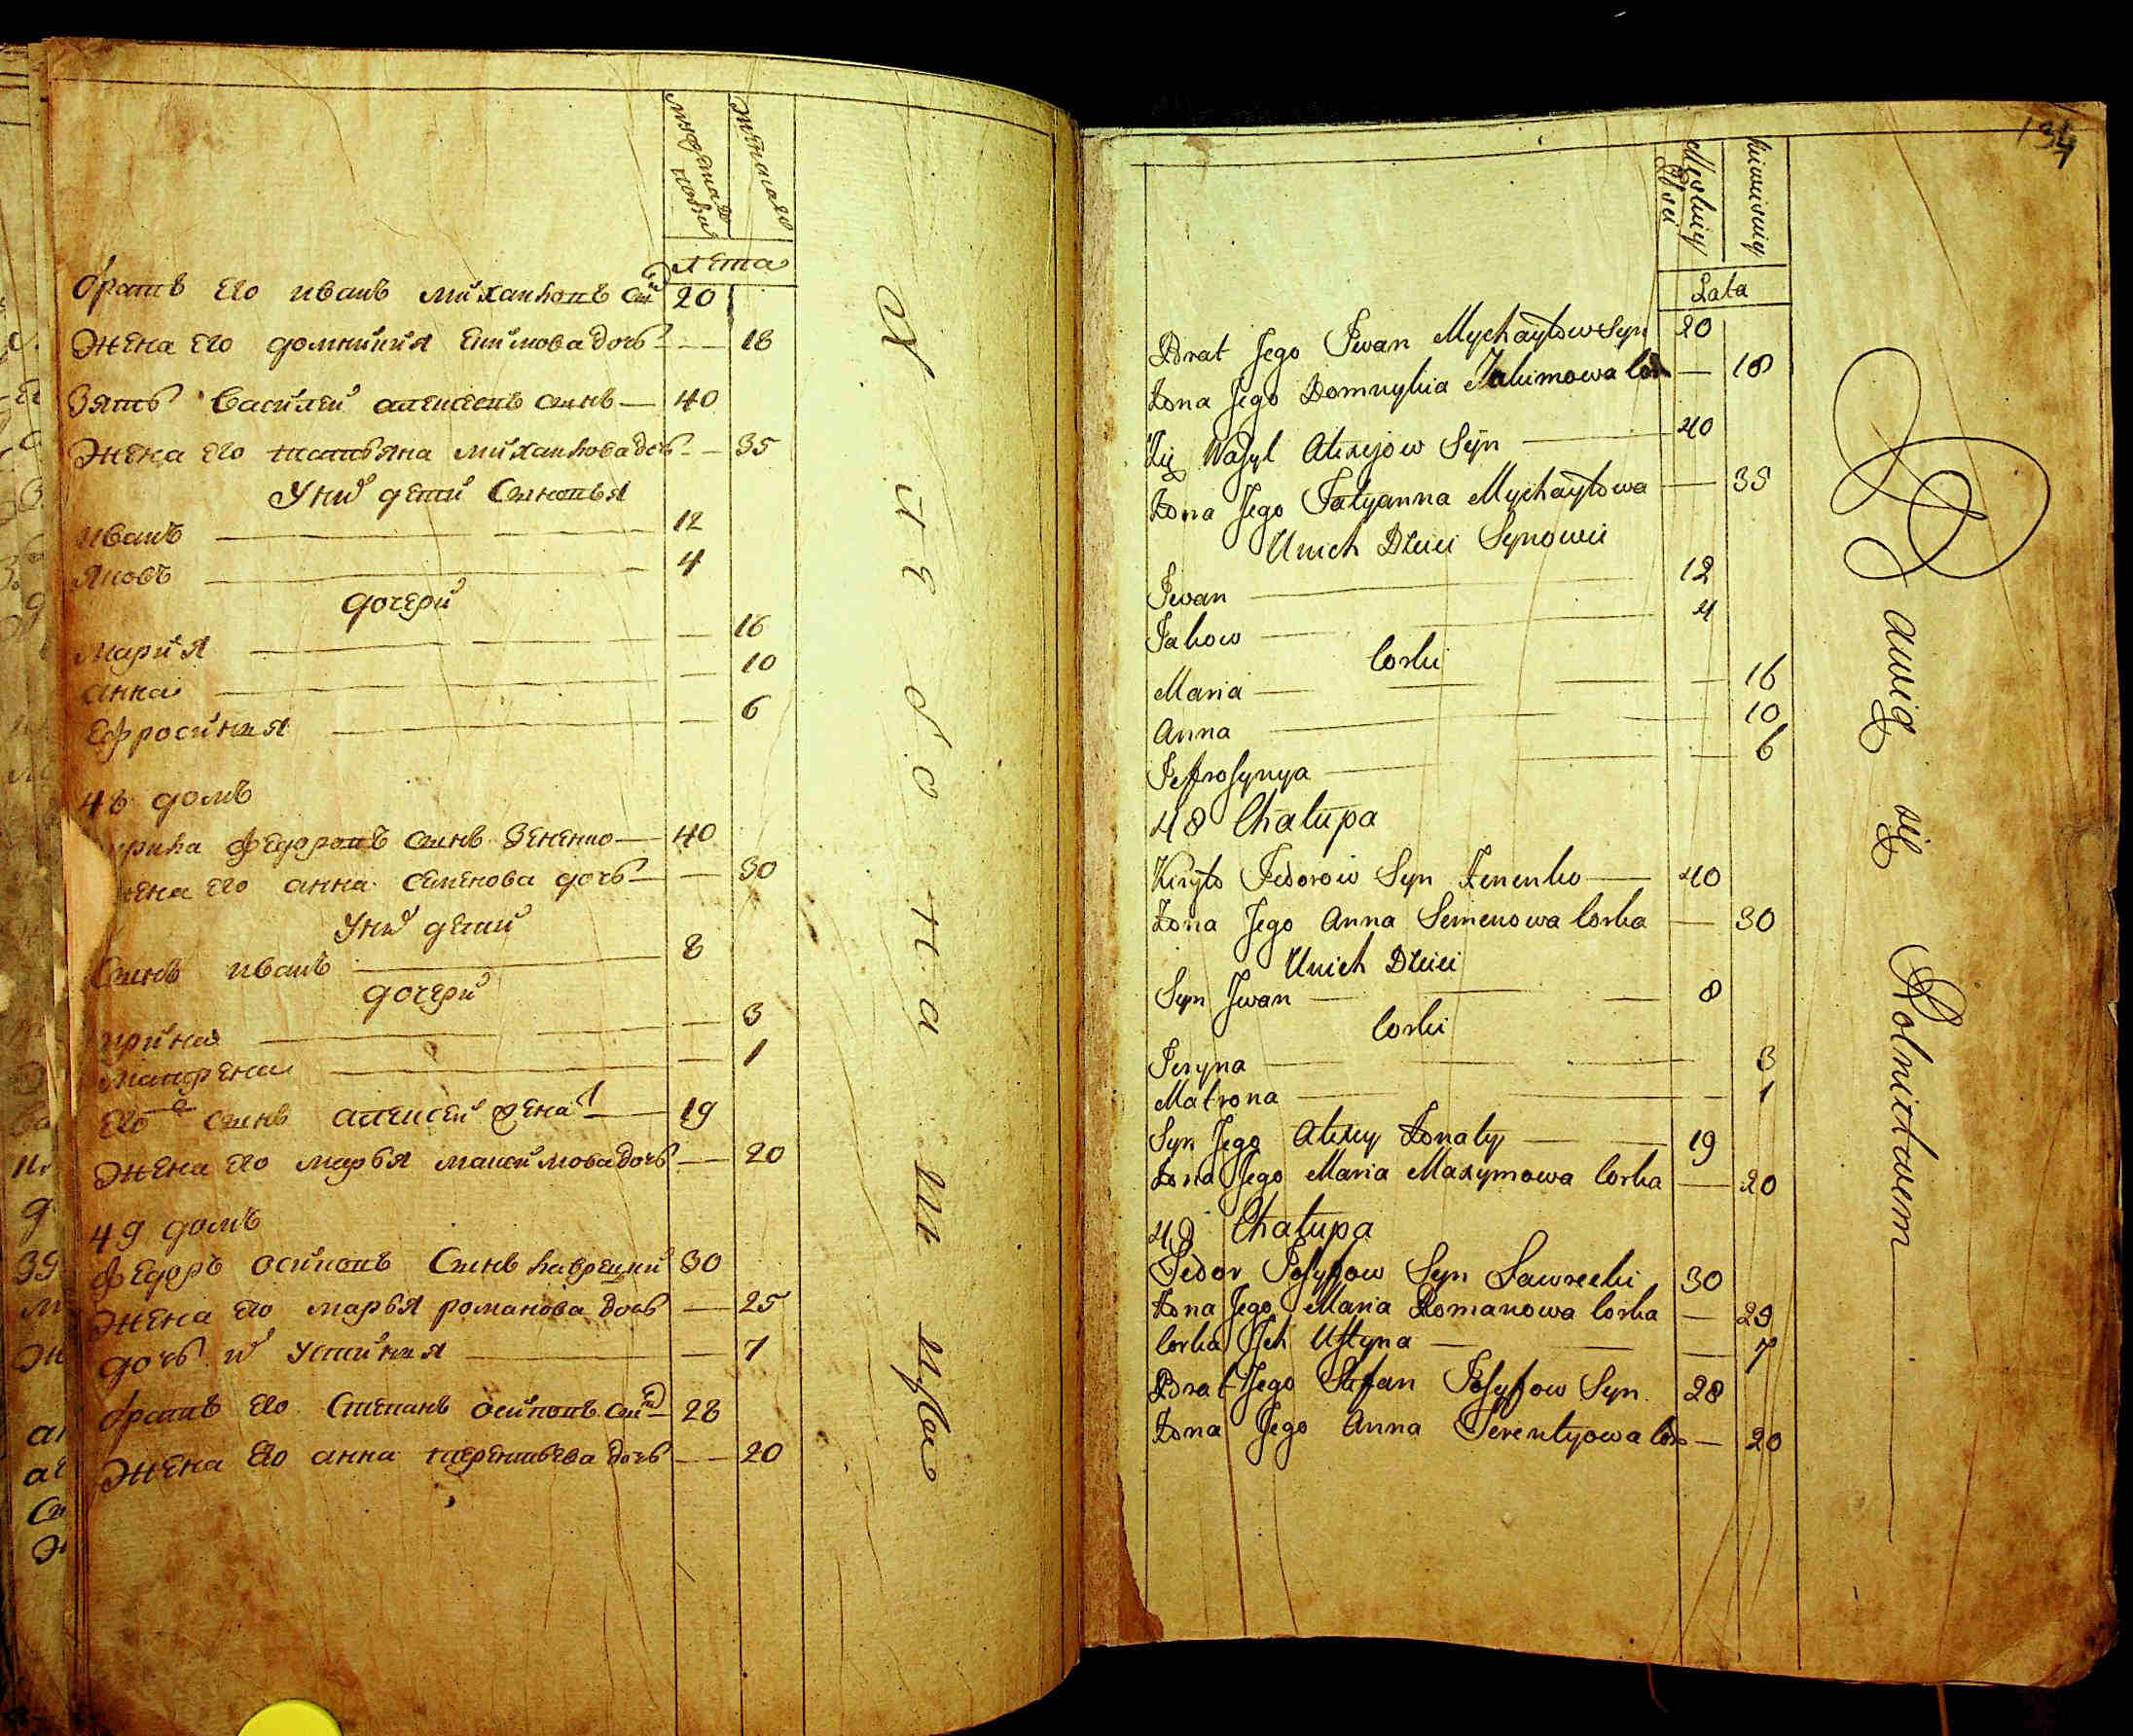 мужеска полу
женска
лета
братъ его иванъ михайловъ снъ 20
жена его домникия екимова дочь 18
Зять василей алексеевъ сынъ 40
жена его татьяна михайлова дочь 35
У них дети Сыновья
иванъ 12
яковъ 4
дочери
мария 16
анна 10
Ефросиния 6
48 домъ
Федоровъ сынъ Зененко 40
жена его анна семенова дочь 30
У них дети
Сынъ иванъ 8
дочери
ирина 3
матрена 1
его сынъ алексей женат 19
жена его марья максимова дочь 20
49 домъ
Федоръ осиповъ Сынъ лаврецкий 30
жена его марья романова дочь 25
дочь их устиния 7
братъ его Степанъ осиповъ снъ 28
жена его анна терентьева дочь 20
134
Męskiey Płci
Niewieściey
Lata
Brat Jego Iwan Mychayłow Syn 20
Żona Jego Domnykia Jakimowa Cór 18
Zię Wasyl Alexijow Syn 40
Żona Jego Tatyanna Mychayłowa 35
Unich Dzieci Synowie
Iwan 12
Jakow 4
Corki
Maria 16
Anna 10
Jefrosynya 6
48 Chałupa
Kiryło Fedorow Syn Zenenko 40
Żona Jego Anna Semenowa Corka 30
Unich Dzieci
Syn Iwan 8
Corki
Jeryna 3
Matrona 1
Syn Jego Alexy Żonaty 19
Żona Jego Maria Maxymowa Corka 20
49 Chałupa
Fedor Josyfow Syn Ławrecki 30
Żona Jego Maria Romanowa Corka 25
Corka Ich Ustyna 7
Brat Jego Stefan Josyfow Syn 28
Żona Jego Anna Terentyowa Cor 20
Bawią się Rolnictwem